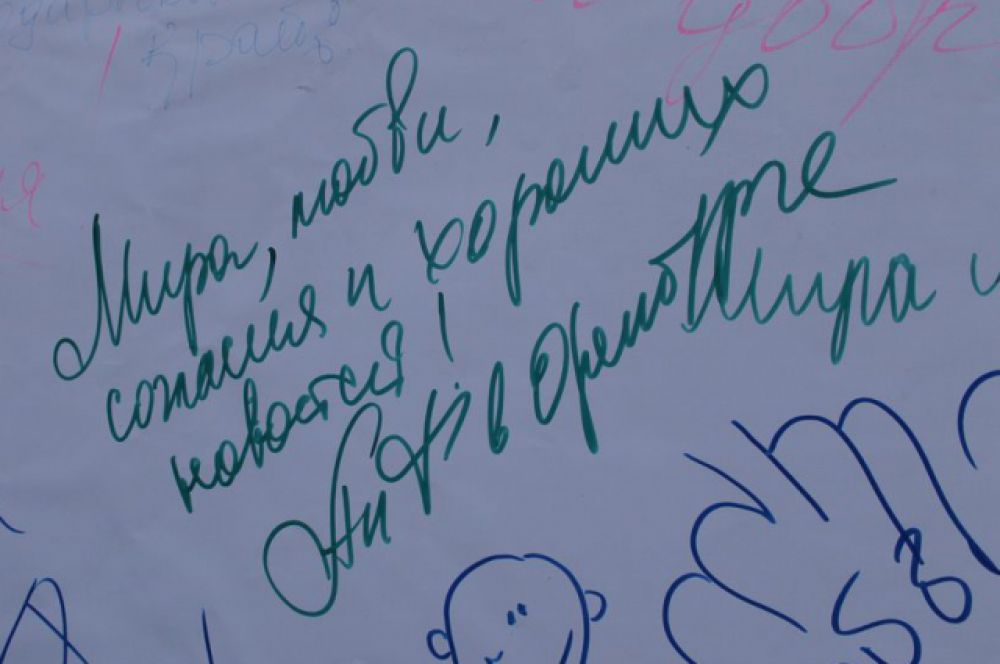 добр
Мира, любви,
согласия и хороших
новостей!
АиФ в Оренбурге
Мира и